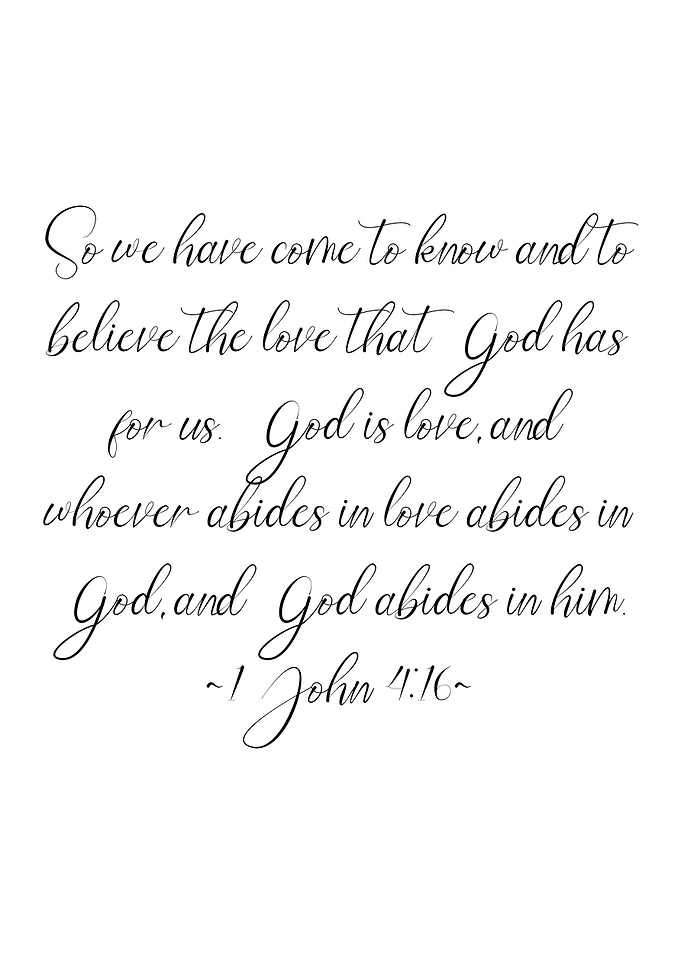 So we have come to know and to
believe the love that God has
for us. God is love, and
whoever abides in love abides in
God, and God abides in him.
~1 John 4:16~